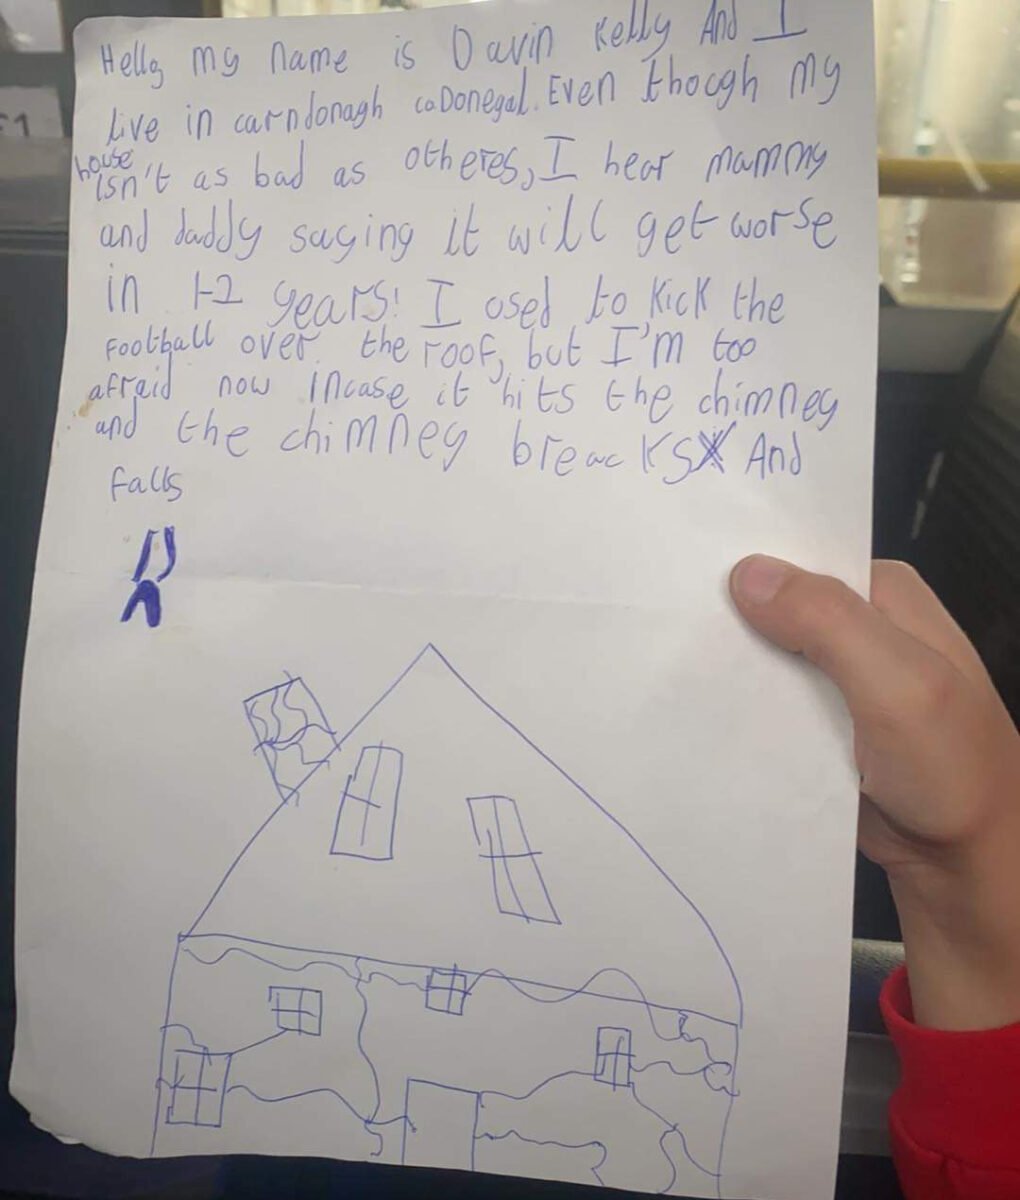 Hello my name is Davin Kelly And I
live in carndonagh coDonegal. Even though my
house
isn't as bad as otheres, I hear mammy
and daddy saying it will get worse
in 1-2 years! I used to kick the
football over the roof, but I'm too
afraid now incase it hits the chimney
and the chimney breacks And
falls